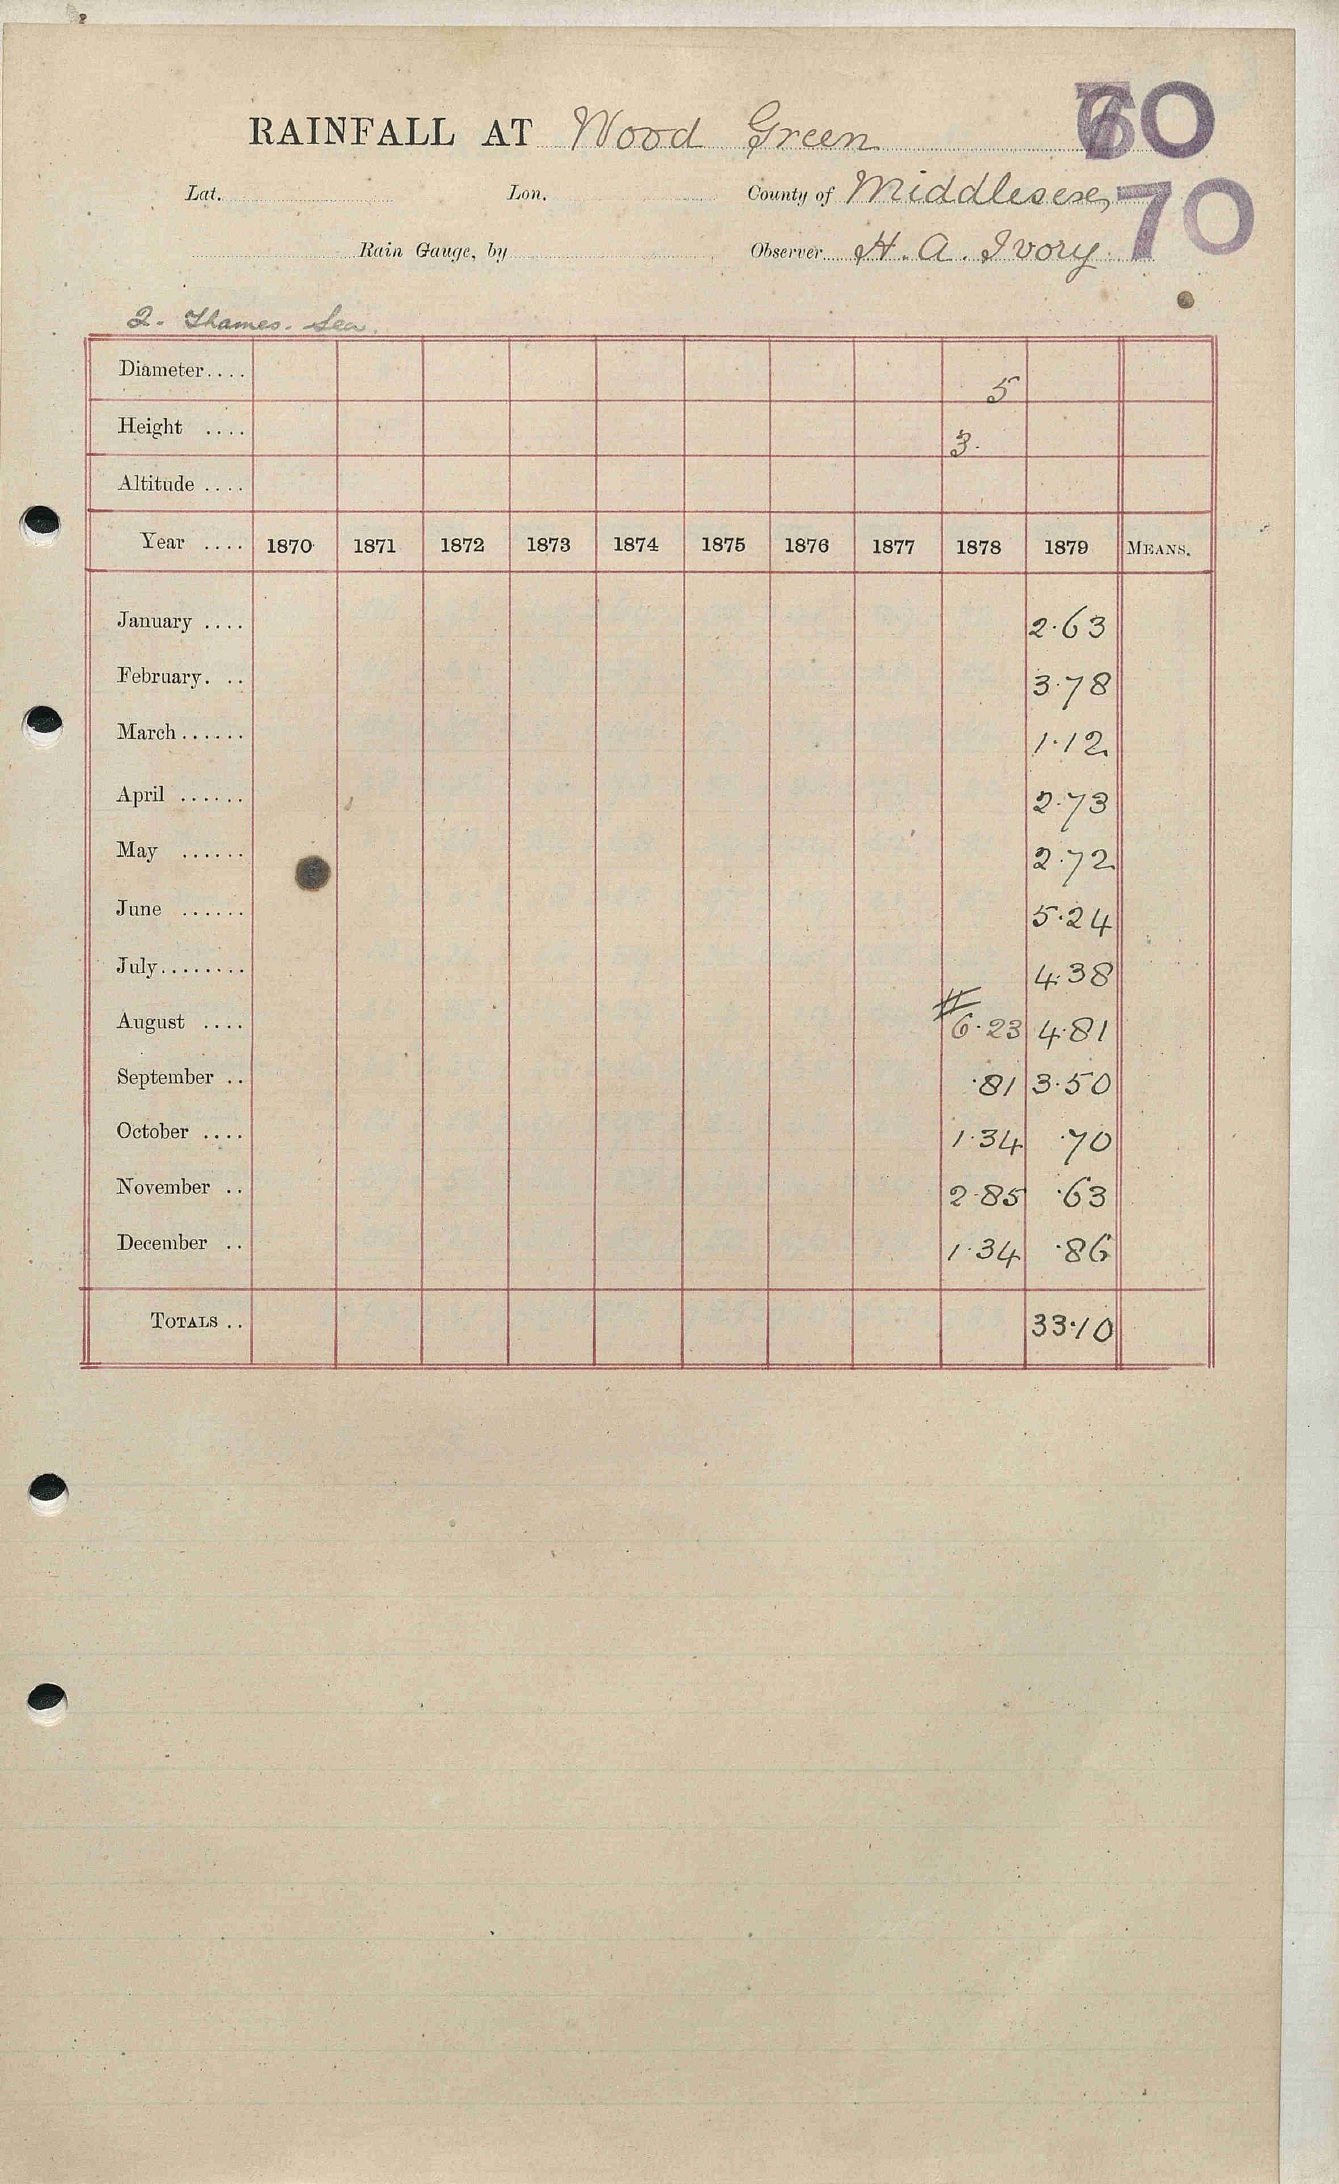 60
RAINFALL AT Wood Green
Lat. Lon. County of Middlesex 70
Rain Gauge, by Observer H. A. Ivory.
2. Thames. Sea.
Diameter.... 5
Height .... 3.
Altitude ....
Year .... 1870 1871 1872 1873 1874 1875 1876 1877 1878 1879 MEANS.
January .... 2.63
February. .. 3.78
March...... 1.12
April ...... 2.73
May ...... 2.72
June ...... 5.24
July........ 4.38
#
August .... 6.23 4.81
September .. .81 3.50
October .... 1.34 .70
November .. 2.85 .63
December .. 1.34 .86
TOTALS .. 33.10